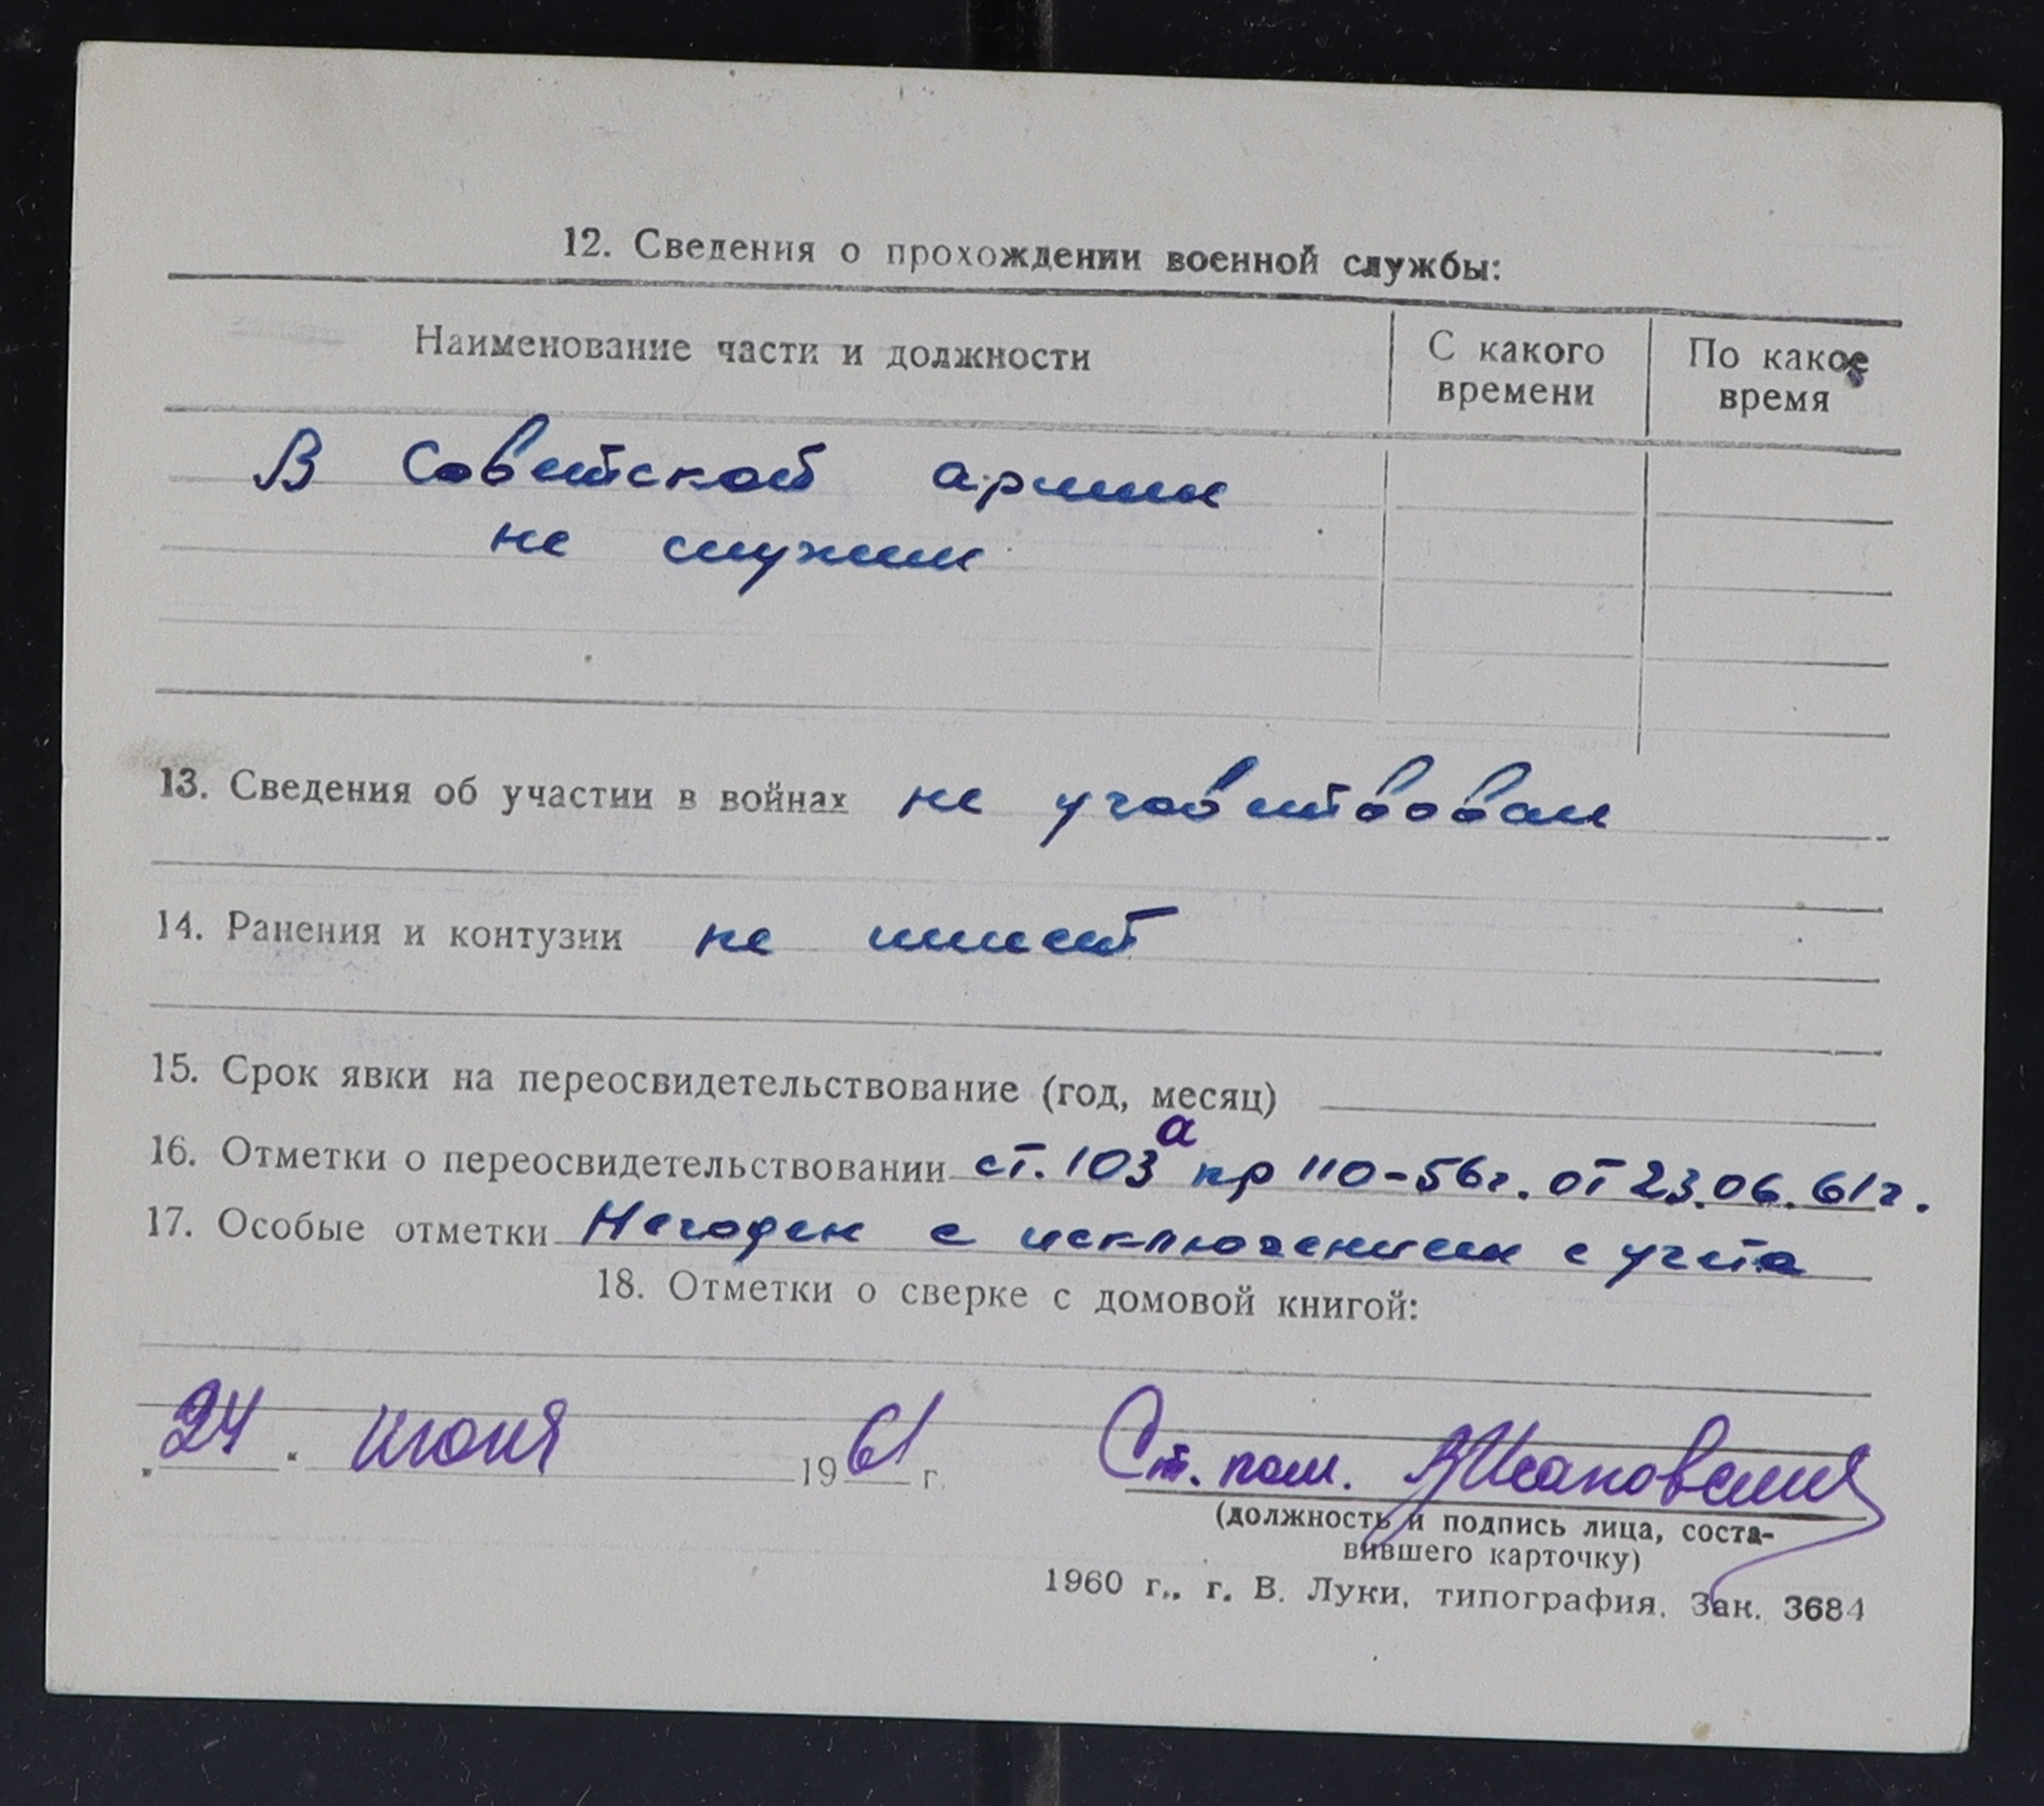 12. Сведения о прохождении военной службы:
Наименование части и должности
С какого времени
По какое время
В Советской армии
не служил
13. Сведения об участии в войнах не участвовал
14. Ранения и контузии не имеет
15. Срок явки на переосвидетельствование (год, месяц)
16. Отметки о переосвидетельствовании ст. 103а пр 110-56г. от 23.06.61г.
17. Особые отметки Негоден с исключением с учета
18. Отметки о сверке с домовой книгой:
„24“ июня 1961 г.
Ст. пом.
(должность и подпись лица, соста-
вившего карточку)
1960 г., г. В. Луки, типография. Зак. 3684